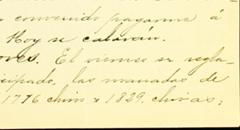 convenido pagarme á
Hoy se calarán.
El viernes se regla-
cipado, las manadas de
1776 chin y 1829 chivas;